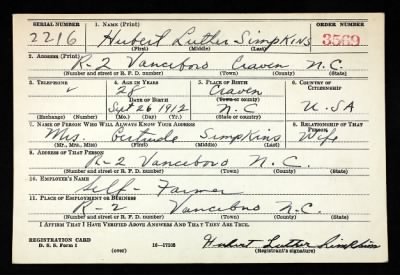 SERIAL NUMBER 1. NAME (Print) ORDER NUMBER
2216 Hubert Luther Simpkins 3569
(First) (Middle) (Last)
2. ADDRESS (Print)
R-2 Vanceboro Craven N.C.
(Number and street or R. F. D. number) (Town) (County) (State)
3. TELEPHONE 4. AGE IN YEARS 5. PLACE OF BIRTH 6. COUNTRY OF CITIZENSHIP
28 Craven
DATE OF BIRTH (Town or county)
Sept 26 1912 N.C U.SA
(Exchange) (Number) (Mo.) (Day) (Yr.) (State or country)
7. NAME OF PERSON WHO WILL ALWAYS KNOW YOUR ADDRESS 8. RELATIONSHIP OF THAT PERSON
Mrs. Gertrude Simpkins Wife
(Mr., Mrs., Miss) (First) (Middle) (Last)
9. ADDRESS OF THAT PERSON
R-2 Vanceboro N.C.
(Number and street or R. F. D. number) (Town) (County) (State)
10. EMPLOYER'S NAME
Self- Farmer
11. PLACE OF EMPLOYMENT OR BUSINESS
R-2 Vanceboro N.C.
(Number and street or R. F. D. number) (Town) (County) (State)
I AFFIRM THAT I HAVE VERIFIED ABOVE ANSWERS AND THAT THEY ARE TRUE.
REGISTRATION CARD
D. S. S. Form 1 (over) 16-17105 Hubert Luther Simpkins
(Registrant's signature)